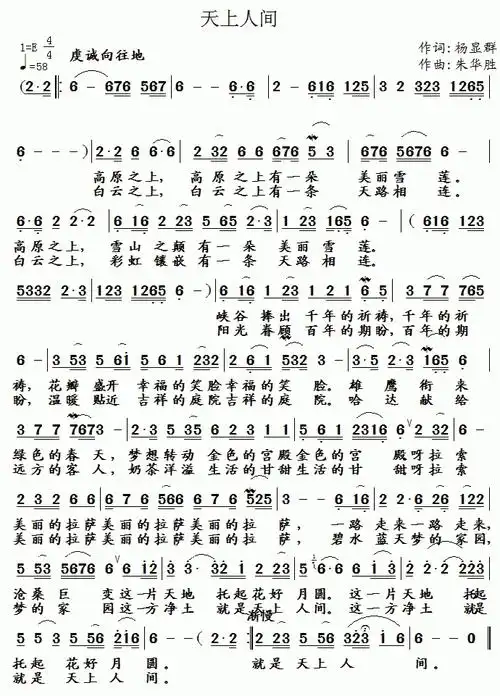 天上人间
1=E 4/4
♩=58 虔诚向往地
作词:杨显群
作曲:朱华胜
(2·2 ‖: 6 - 676 567 | 6 - - 6·6 | 2 - 616 125 | 3 2 323 1265 |
6 - - -) | 2·2 2 6 6·6 | 2 32 6 6 676 5 3 | 676 5676 6 - |
高原之上, 高原之上有一朵 美丽雪 莲。
白云之上, 白云之上有一条 天路相 连。
6·6 2 2 - | 6 16 2 23 5 65 2·3 | 1 23 165 6 - | (616 123
高原之上, 雪山 之巅有一朵 美丽雪莲。
白云之上, 彩虹 镶嵌有一条 天路相连。
5332 2·3 | 123 1265 6 -) | 6 16 1 23 | 1 21 6 5 | 3 7 7 765
峡谷 捧出 千年的祈祷,千年的祈
阳光 眷顾 百年的期盼,百年的期
6 - | 3 53 5 6i | 5 6 1 232 | 2 61 532 | 3·5 2·3 | 165 6
祷, 花瓣 盛开 幸福的笑脸幸福的笑 脸。雄 鹰衔来
盼, 温暖 贴近 吉祥的庭院吉祥的庭 院。哈 达献给
3 7 7 7673 - | 2·3 53 5 | 6 5 6 3 2 | 5 61 2316 6 | 2 32 6
绿色的春 天,梦想转动 金色的宫殿金色的宫 殿呀拉索
远方的客 人,奶茶洋溢 生活的甘甜生活的甘 甜呀拉索
2 3 2 6 6 | 6 7 6 566 6 7 6 525 | 3 - - 6 16 | 2·6 26 122
美丽的拉萨美丽的拉萨美丽的拉 萨, 一路 走来一路 走来,
美丽的拉萨美丽的拉萨美丽的拉 萨, 碧水 蓝天梦的 家园,
沧桑巨 变这一片天地 托起花好月 圆。这一片天地 托起
梦的家 园这一方净土 就是天上人 间。这一方净土 就是
渐慢
托起 花好月 圆。 就是天上人 间。
就是 天上人 间。